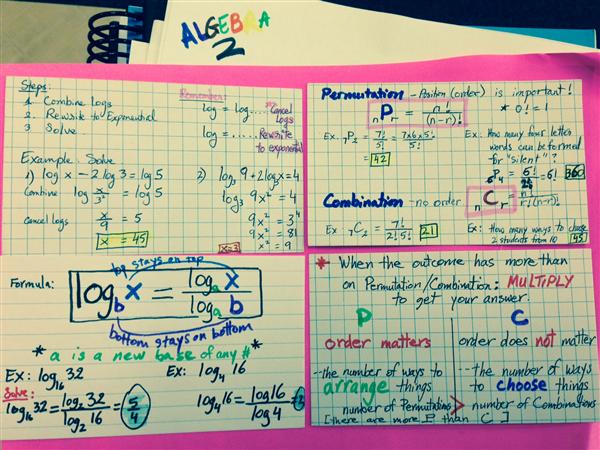 ALGEBRA
2
Steps:
1. Combine Logs
2. Rewrite to Exponential
3. Solve
Remember:
log = log.... *Cancel
Logs
log = ...... Rewrite
to exponential
Example: Solve
1) log x − 2 log 3 = log 5
Combine log x/3² = log 5
Cancel logs x/9 = 5
x = 45
2) log₃ 9 + 2 log₃ x = 4
log₃ 9x² = 4
9x² = 3⁴
9x² = 81
x² = 9
x=3
Permutation - Position (order) is important!
nPr = n!/(n-r)! * 0! = 1
Ex: ₇P₂ = 7!/5! = 7x6x5!/5!
= 42
Ex: How many four letter
words can be formed
for "silent"?
₆P₄ = 6!/2! = 360
Combination - no order
nCr = n!/r!(n-r)!
Ex: ₇C₂ = 7!/2!5! 21
Ex: How many ways to choose
2 students from 10 45
Formula:
top stays on top
log_b x = log_a x / log_a b
bottom stays on bottom
* a is a new base of any # *
Ex: log₁₆ 32
Solve:
log₁₆ 32 = log₂ 32 / log₂ 16 = 5/4
Ex: log₄ 16
log₄ 16 = log 16 / log 4 =
* When the outcome has more than
on Permutation/Combination: MULTIPLY
to get your answer.
P
order matters
--the number of ways to
arrange things
C
order does not matter
-- the number of ways
to choose things
number of Permutations > number of Combinations
[there are more P than C]